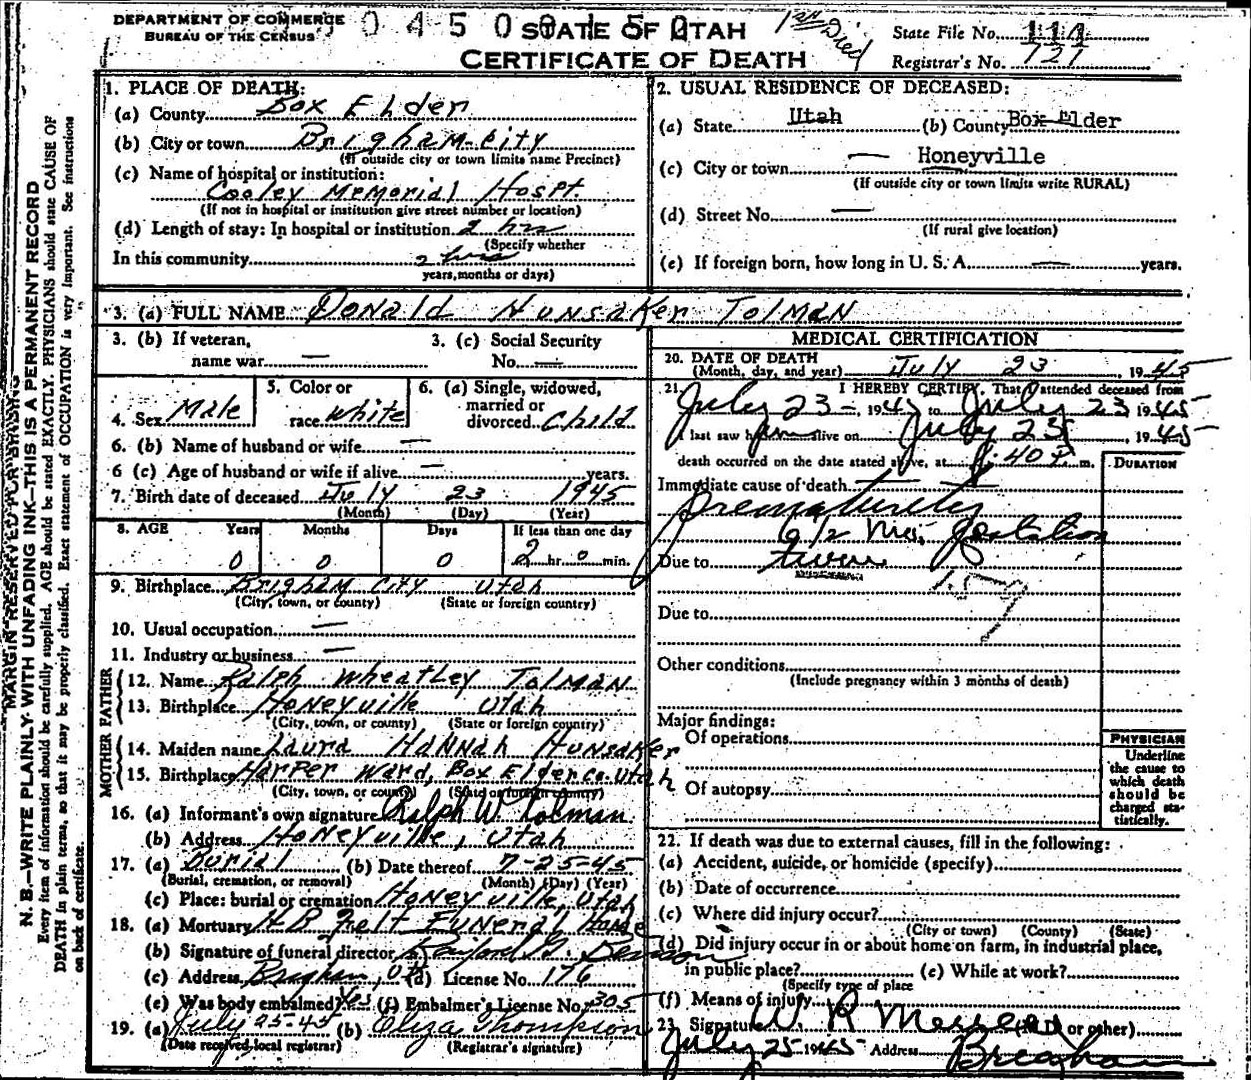 DEPARTMENT OF COMMERCE
BUREAU OF THE CENSUS
STATE OF UTAH
CERTIFICATE OF DEATH
1st Died
State File No. 114
Registrar's No. 721
MARGIN RESERVED FOR BINDING
N. B.—WRITE PLAINLY WITH UNFADING INK—THIS IS A PERMANENT RECORD
Every item of information should be carefully supplied. AGE should be stated EXACTLY. PHYSICIANS should state CAUSE OF
DEATH in plain terms, so that it may be properly classified. Exact statement of OCCUPATION is very important. See instructions
on back of certificate.
1. PLACE OF DEATH:
(a) County Box Elder
(b) City or town Brigham City
(If outside city or town limits name Precinct)
(c) Name of hospital or institution:
Cooley Memorial Hospt.
(If not in hospital or institution give street number or location)
(d) Length of stay: In hospital or institution 2 hrs
(Specify whether
In this community 2 hrs
years, months or days)
2. USUAL RESIDENCE OF DECEASED:
(a) State Utah (b) County Box Elder
(c) City or town — Honeyville
(If outside city or town limits write RURAL)
(d) Street No. —
(If rural give location)
(e) If foreign born, how long in U. S. A. — years.
3. (a) FULL NAME Donald Hunsaker Tolman
3. (b) If veteran,
name war —
3. (c) Social Security
No. —
4. Sex Male
5. Color or
race white
6. (a) Single, widowed,
married or
divorced Child
6. (b) Name of husband or wife —
6 (c) Age of husband or wife if alive — years.
7. Birth date of deceased July 23 1945
(Month) (Day) (Year)
8. AGE Years Months Days If less than one day
0 0 0 2 hr. 0 min.
9. Birthplace Brigham City Utah
(City, town, or county) (State or foreign country)
10. Usual occupation —
11. Industry or business —
FATHER
12. Name Ralph Wheatley Tolman
13. Birthplace Honeyville Utah
(City, town, or county) (State or foreign country)
MOTHER
14. Maiden name Laura Hannah Hunsaker
15. Birthplace Harper Ward, Box Elder Co. Utah
(City, town, or county) (State or foreign country)
16. (a) Informant's own signature Ralph W Tolman
(b) Address Honeyville, Utah
17. (a) Burial (b) Date thereof 7-25-45
(Burial, cremation, or removal) (Month) (Day) (Year)
(c) Place: burial or cremation Honeyville, Utah
18. (a) Mortuary H B Felt Funeral Home
(b) Signature of funeral director
(c) Address Brigham, Ut (d) License No. 176
(e) Was body embalmed? Yes (f) Embalmer's License No. 305
19. (a) July 25-45 (b) Eliza Thompson
(Date received local registrar) (Registrar's signature)
MEDICAL CERTIFICATION
20. DATE OF DEATH
(Month, day, and year) July 23 1945
21. I HEREBY CERTIFY, That I attended deceased from
July 23-, 1945 to July 23 1945
I last saw him alive on July 23, 1945
death occurred on the date stated above, at 40 P. m.
DURATION
Immediate cause of death
Prematurity
6 1/2 Mo. gestation
Due to twin
159
Due to
Other conditions
(Include pregnancy within 3 months of death)
Major findings:
Of operations
Of autopsy
PHYSICIAN
Underline
the cause to
which death
should be
charged sta-
tistically.
22. If death was due to external causes, fill in the following:
(a) Accident, suicide, or homicide (specify)
(b) Date of occurrence
(c) Where did injury occur?
(City or town) (County) (State)
(d) Did injury occur in or about home on farm, in industrial place,
in public place? (e) While at work?
(Specify type of place
(f) Means of injury
23. Signature W. R. (M.D. or other)
July 25 1945 Address Brigham